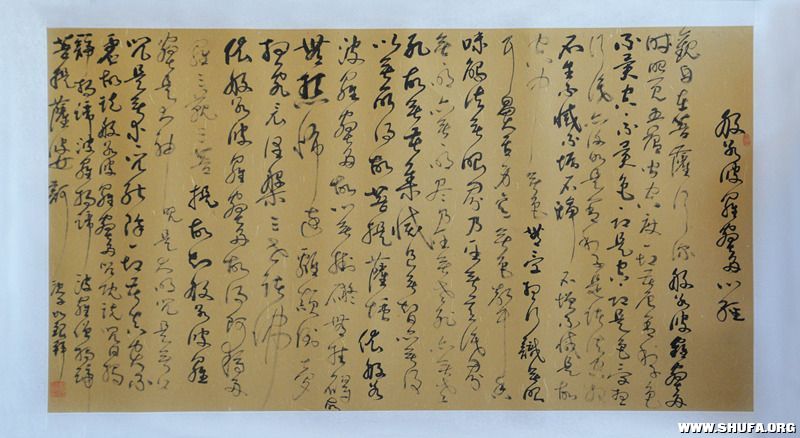 般若波羅蜜多心經
觀自在菩薩行深般若波羅蜜多
時照見五蘊皆空度一切苦厄舍利子色
不異空空不異色色即是空空即是色受想
行識亦復如是舍利子是諸法空相
不生不滅不垢不淨不增不減是故
空中無色無受想行識無眼
耳鼻舌身意無色聲香
味觸法無眼界乃至無意識界
無無明亦無無明盡乃至無老死亦無老
死盡無苦集滅道無智亦無得
以無所得故菩提薩埵依般若
波羅蜜多故心無罣礙無罣礙故
無有恐怖遠離顛倒夢
想究竟涅槃三世諸佛
依般若波羅蜜多故得阿耨多
羅三藐三菩提故知般若波羅
蜜多是大神咒是大明咒是無上
咒是無等等咒能除一切苦真實不
虛故說般若波羅蜜多咒即說咒曰揭
諦揭諦波羅揭諦波羅僧揭諦
菩提薩婆訶
WWW.SHUFA.ORG